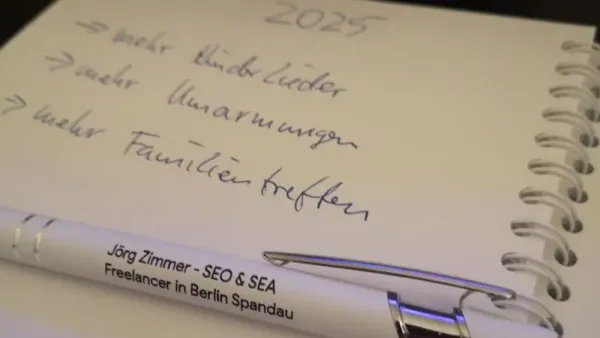 2025
→ mehr Kinderlieder
→ mehr Umarmungen
→ mehr Familientreffen
Jörg Zimmer - SEO & SEA
Freelancer in Berlin Spandau